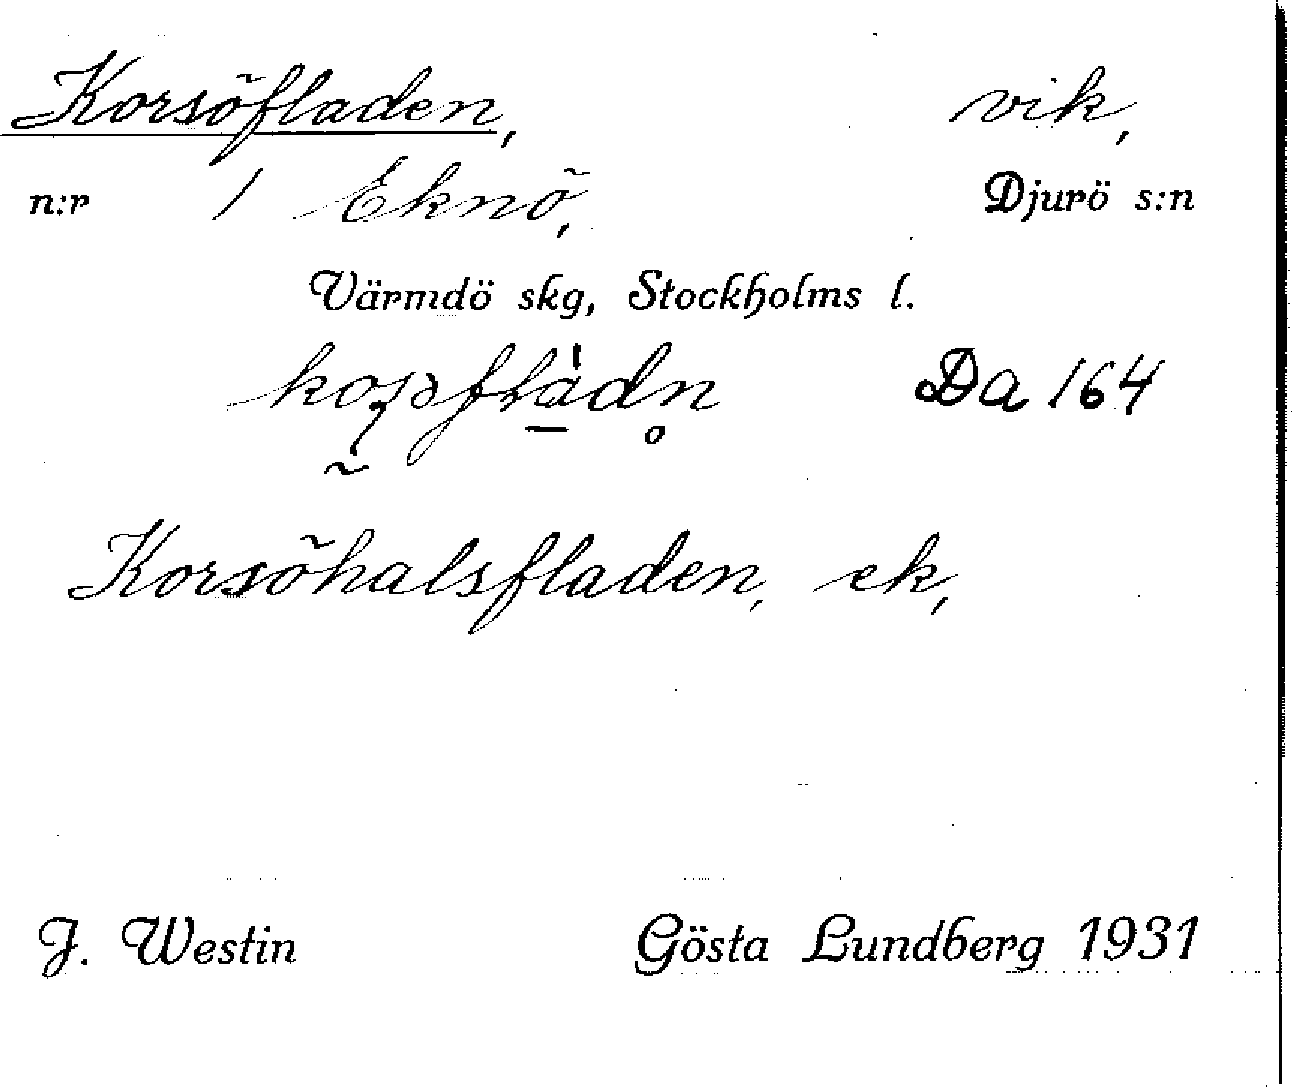 Korsöfladen, vik,
n:r 1 Eknö, Djurö s:n
Värmdö skg, Stockholms l.
Da 164
Korsöhalsfladen, ek,
J. Westin Gösta Lundberg 1931